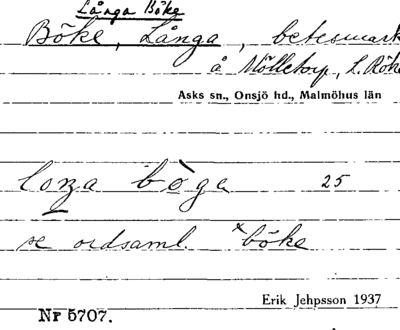 Långa Böke
Böke, Långa, betesmark
å Mölletorp, L. Röke
Asks sn., Onsjö hd., Malmöhus län
loŋa bògə 25
se ordsaml. ˣböke
Erik Jehpsson 1937
Nr 5707.